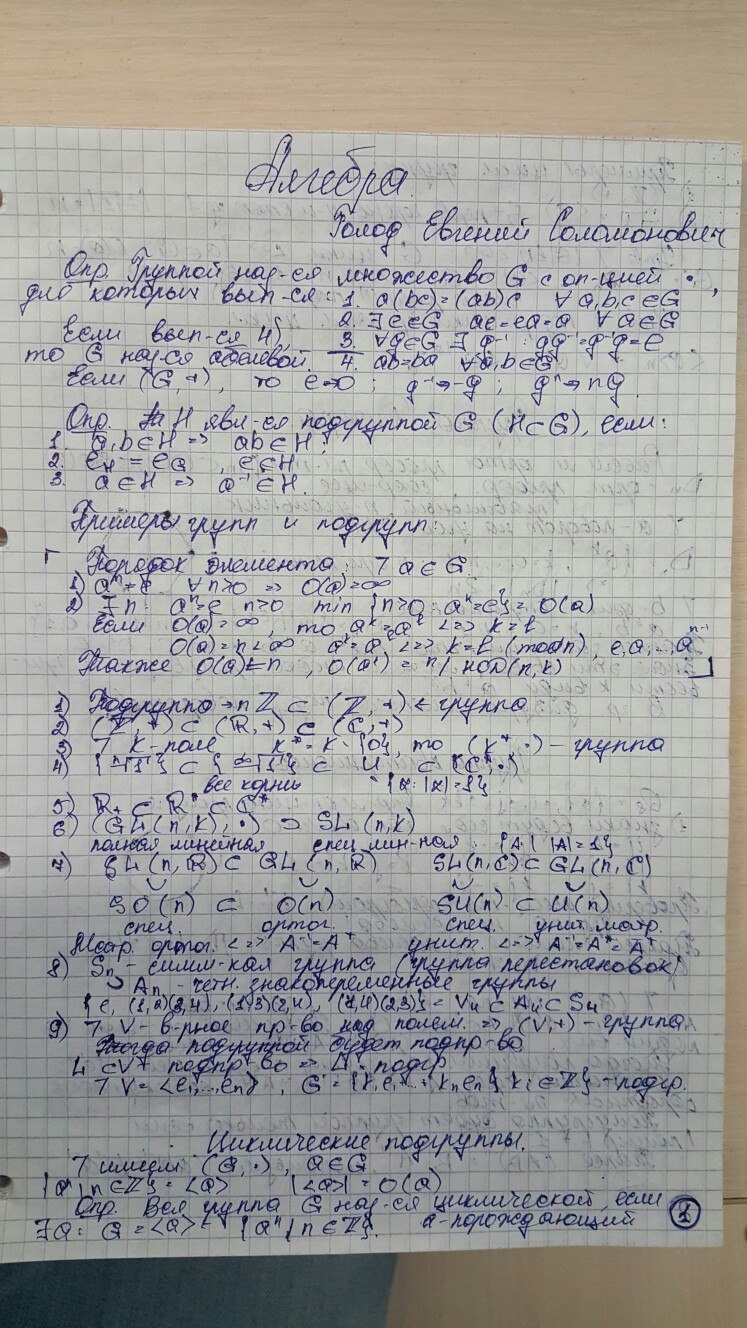 Алгебра
Голод Евгений Соломонович
Опр. Группой наз-ся множество G с оп-цией ·,
для которых вып-ся: 1. a(bc)=(ab)c ∀a,b,c∈G
2. ∃e∈G ae=ea=a ∀a∈G
Если вып-ся 4), 3. ∀g∈G ∃g⁻¹: gg⁻¹=g⁻¹g=e
то G наз-ся абелевой. 4. ab=ba ∀a,b∈G
Если (G,+), то e→0; g⁻¹→-g; gⁿ→ng.
Опр. H явл-ся подгруппой G (H⊂G), если:
1. a,b∈H => ab∈H
2. e_H = e_G, e∈H
3. a∈H => a⁻¹∈H.
Примеры групп и подгрупп.
Порядок элемента: 7 a∈G
1) aⁿ≠e ∀n>0 => O(a)=∞
2) ∃n: aⁿ=e n>0 min{n>0: aⁿ=e} = O(a)
Если O(a)=∞, то aᵏ=aˡ <=> k=l
O(a)=n<∞ aᵏ=aˡ <=> k=l (mod n), e,a,...aⁿ⁻¹
Также O(a)=n, O(aᵏ) = n/НОД(n,k)
1) Подгруппа → nZ ⊂ (Z,+) ← группа
2) (Z,+) ⊂ (R,+) ⊂ (C,+)
3) 7 K-поле K*=K\{0}, то (K*,·) - группа
4) {ⁿ√1} ⊂ {∞√1} ⊂ U ⊂ (C*,·)
все корни {α: |α|=1}
5) R₊ ⊂ R* ⊂ C*
6) (GL(n,K),·) ⊃ SL(n,K)
полная линейная спец. лин-ная {A| |A|=1}
7) SL(n,R) ⊂ GL(n,R) SL(n,C) ⊂ GL(n,C)
∪ ∪ ∪ ∪
SO(n) ⊂ O(n) SU(n) ⊂ U(n)
спец. ортог. спец. унит. матр.
Матр. ортог. <=> A⁻¹=Aᵀ унит. <=>
8) Sₙ - симм-кая группа (группа перестановок)
∪ Aₙ - четн. знакопеременные группы
{e, (1,2)(3,4), (1,3)(2,4), (1,4)(2,3)} = V₄ ⊂ A₄ ⊂ S₄
9) 7 V - в-рное пр-во над полем. => (V,+) - группа
Тогда подгруппой будет подпр-во
L ⊂ V подпр-во => L - подгр.
7 V = <e₁,...,eₙ>, G = {k₁e₁+...+kₙeₙ | kᵢ∈Z} - подгр.
Циклические подгруппы.
7 имеем (G,·), a∈G
{aⁿ|n∈Z} = <a> |<a>| = O(a)
Опр. Вся группа G наз-ся циклической, если
∃a: G = <a> = {aⁿ | n∈Z}. a-порождающий
1